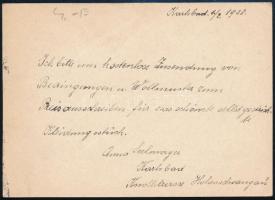 Karlsbad 6/2 1938.
Ich bitte um kostenlose Zusendung von
Bedingungen u. Wollmuster zum
Preisausschreiben für das schönste selbstgestrickte
Kleidungsstück.
Anna
Karlsbad
Hohenschwangau